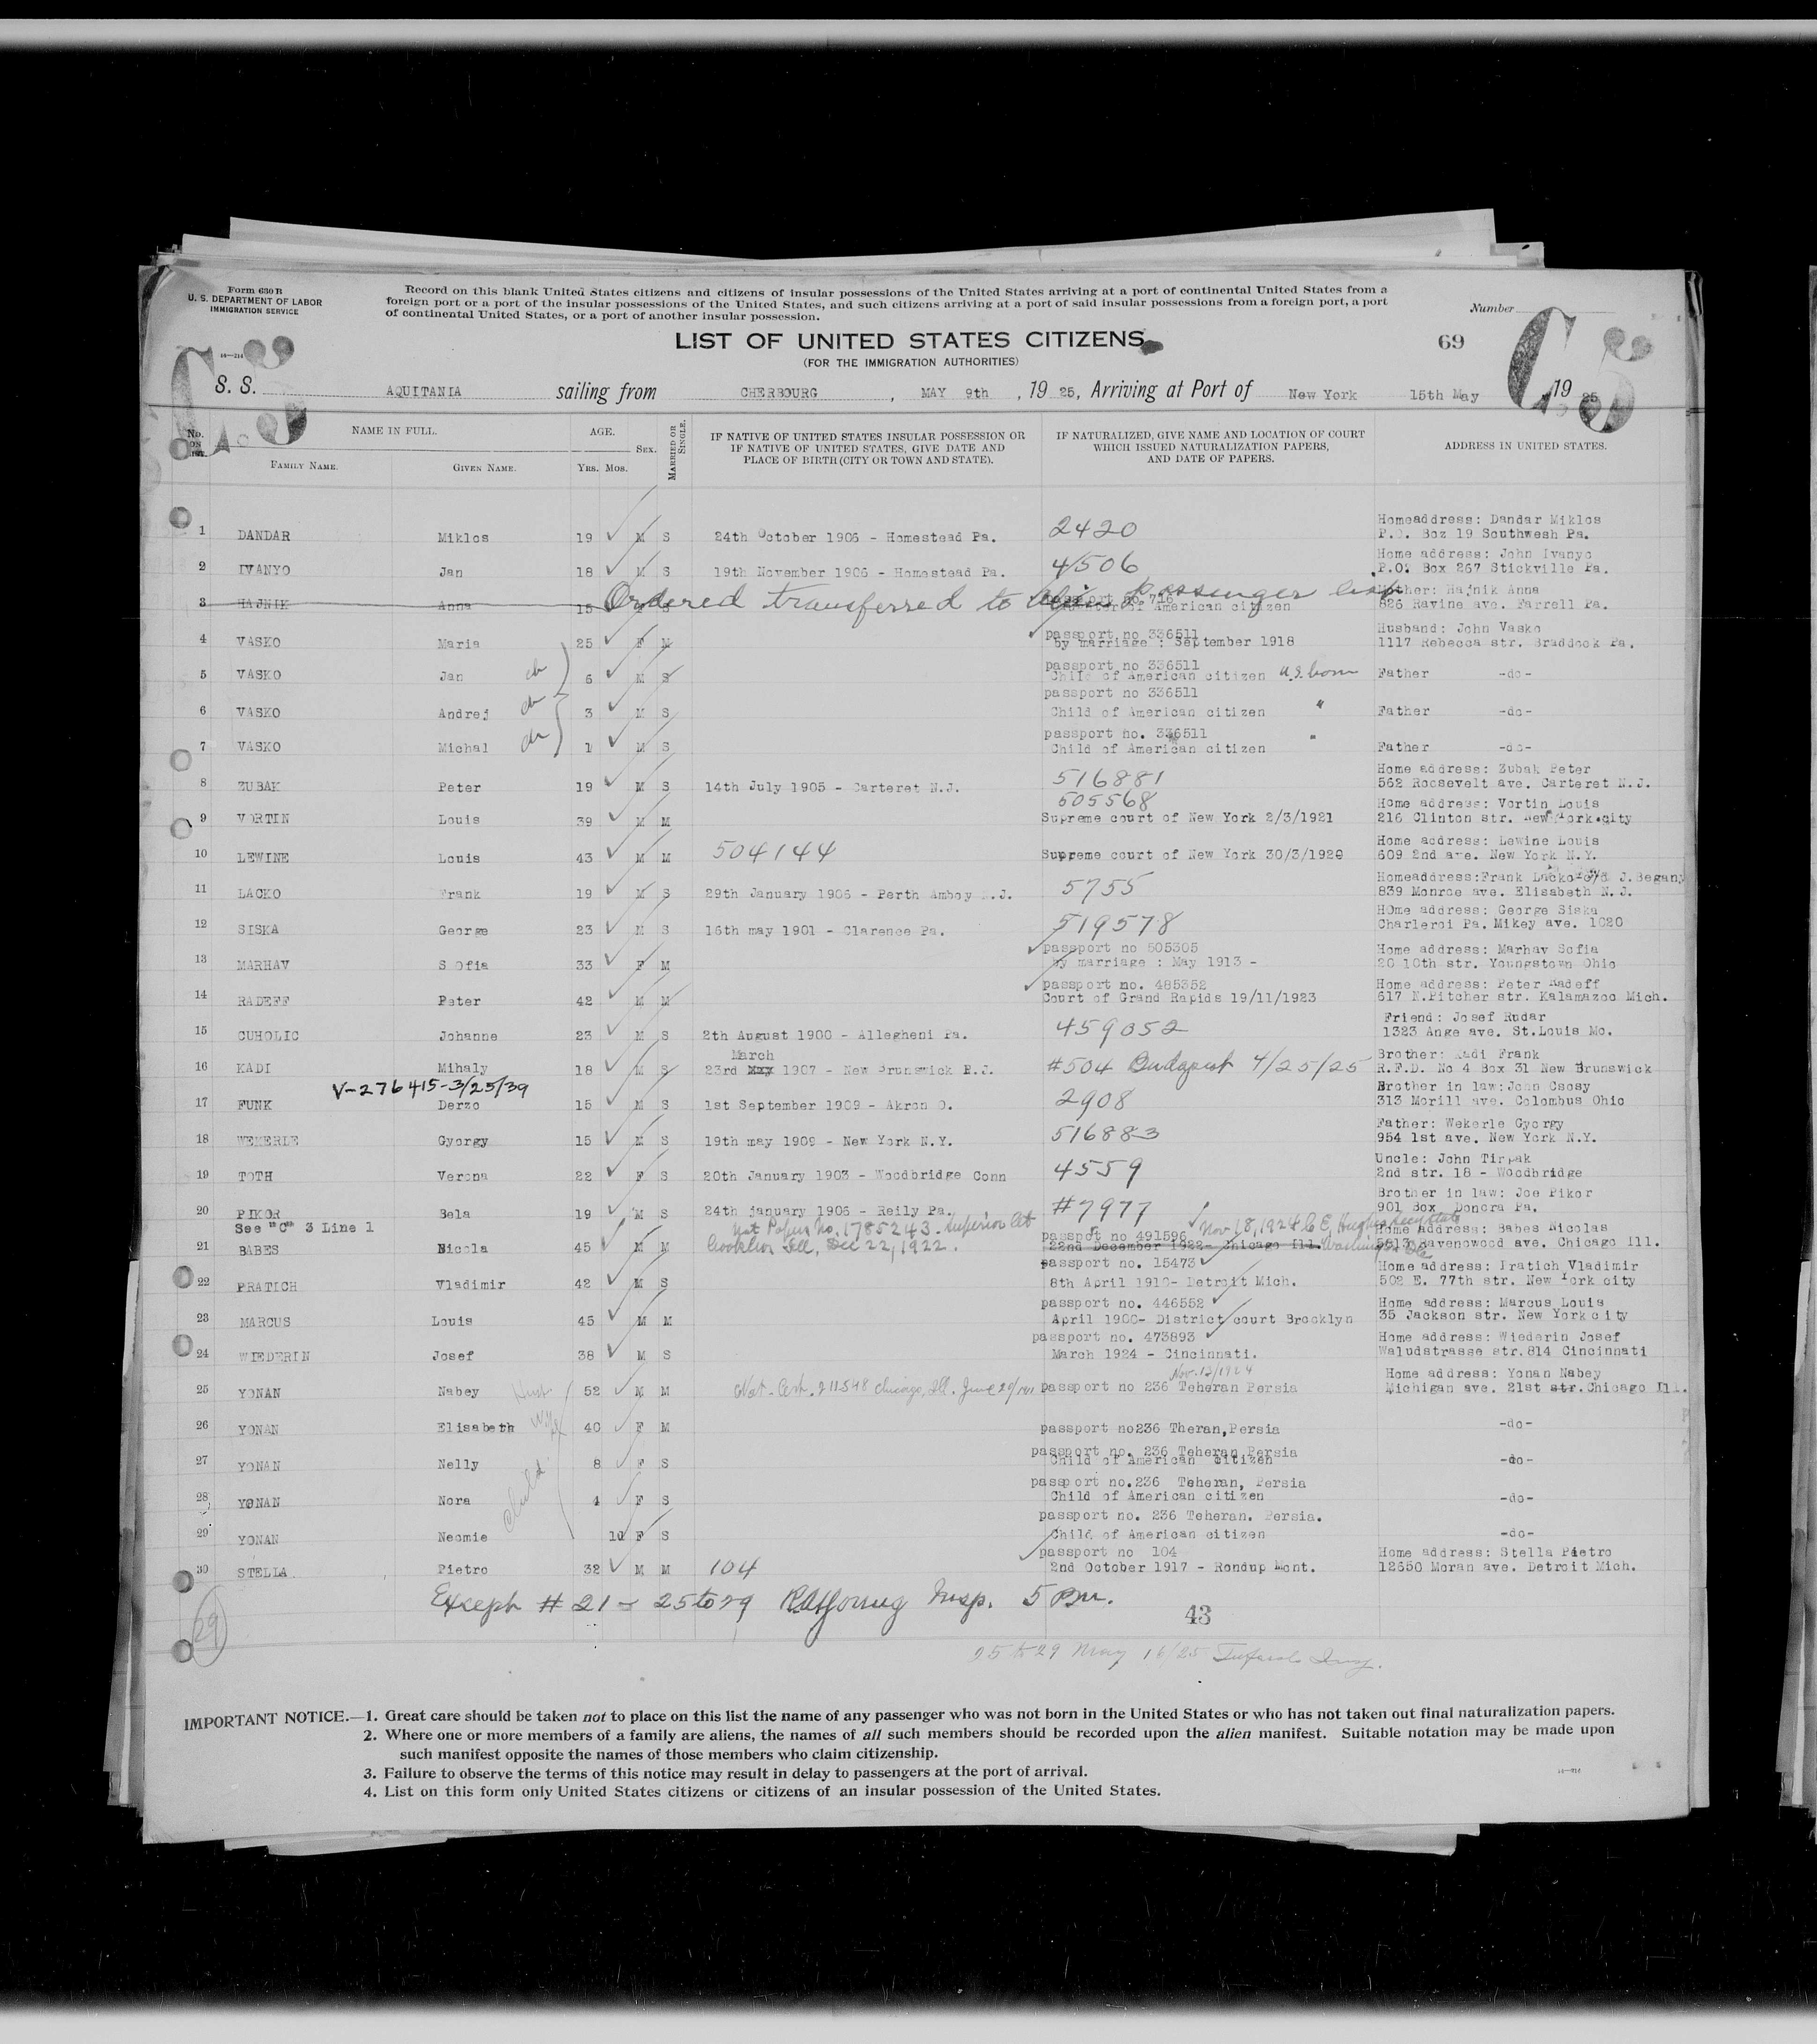 Form 630 B
U. S. DEPARTMENT OF LABOR
IMMIGRATION SERVICE
Record on this blank United States citizens and citizens of insular possessions of the United States arriving at a port of continental United States from a
foreign port or a port of the insular possessions of the United States, and such citizens arriving at a port of said insular possessions from a foreign port, a port
of continental United States, or a port of another insular possession.
Number
LIST OF UNITED STATES CITIZENS
69
(FOR THE IMMIGRATION AUTHORITIES)
S. S. AQUITANIA sailing from CHERBOURG, MAY 9th, 1925, Arriving at Port of New York 15th May 1925
No. ON LIST. NAME IN FULL. AGE. SEX. MARRIED OR SINGLE. IF NATIVE OF UNITED STATES INSULAR POSSESSION OR IF NATIVE OF UNITED STATES, GIVE DATE AND PLACE OF BIRTH (CITY OR TOWN AND STATE). IF NATURALIZED, GIVE NAME AND LOCATION OF COURT WHICH ISSUED NATURALIZATION PAPERS, AND DATE OF PAPERS. ADDRESS IN UNITED STATES.
FAMILY NAME. GIVEN NAME. YRS. MOS.
Homeaddress: Dandar Miklos
1 DANDAR Miklos 19 M S 24th October 1906 - Homestead Pa. 2420 P.O. Boz 19 Southwesh Pa.
Home address: John Ivanyo
2 IVANYO Jan 18 M S 19th November 1906 - Homestead Pa. 4506 P.O. Box 267 Stickville Pa.
Ordered transferred to alien passenger list
Mother: Hajnik Anna
3 HAJNIK Anna 15 S of American citizen 826 Ravine ave. Farrell Pa.
passport no 336511 Husband: John Vasko
4 VASKO Maria 25 F M by marriage : September 1918 1117 Rebecca str. Braddock Pa.
passport no 336511
5 VASKO Jan ch 6 M S Child of American citizen U.S. born Father -do-
passport no 336511
6 VASKO Andrej ch 3 M S Child of American citizen " Father -do-
passport no. 336511
7 VASKO Michal ch 1 M S Child of American citizen " Father -do-
Home address: Zubak Peter
8 ZUBAK Peter 19 M S 14th July 1905 - Carteret N.J. 516881 562 Roosevelt ave. Carteret N.J.
505568 Home address: Vortin Louis
9 VORTIN Louis 39 M M Supreme court of New York 2/3/1921 216 Clinton str. New York.city
Home address: Lewine Louis
10 LEWINE Louis 43 M M 504144 Supreme court of New York 30/3/1920 609 2nd ave. New York N.Y.
Homeaddress:Frank Lacko c/o J.Begany
11 LACKO Frank 19 M S 29th January 1906 - Perth Amboy N.J. 5755 839 Monroe ave. Elisabeth N.J.
HOme address: George Siska
12 SISKA George 23 M S 16th may 1901 - Clarence Pa. 519578 Charleroi Pa. Mikey ave. 1020
passport no 505305 Home address: Marhav Sofia
13 MARHAV SOfia 33 F M by marriage : May 1913 - 20 10th str. Youngstown Ohio
passport no. 485352 Home address: Peter Radeff
14 RADEFF Peter 42 M M Court of Grand Rapids 19/11/1923 617 N.Pitcher str. Kalamazoo Mich.
Friend: Josef Rudar
15 CUHOLIC Johanne 23 M S 2th August 1900 - Allegheni Pa. 459052 1323 Ange ave. St.Louis Mo.
March Brother: Kadi Frank
16 KADI Mihaly 18 M S 23rd xxx 1907 - New Brunswick N.J. #504 Budapest 4/25/25 R.F.D. No 4 Box 31 New Brunswick
V-276415-3/25/39 Brother in law:John Csosy
17 FUNK Derzo 15 M S 1st September 1909 - Akron O. 2908 313 Morill ave. Colombus Ohio
Father: Wekerle Gyorgy
18 WEKERLE Gyorgy 15 M S 19th may 1909 - New York N.Y. 516883 954 1st ave. New York N.Y.
Uncle: John Tirpak
19 TOTH Verona 22 F S 20th January 1903 - Woodbridge Conn 4559 2nd str. 18 - Woodbridge
Brother in law: Joe Pikor
20 PIKOR Bela 19 M S 24th january 1906 - Reily Pa. #7977 901 Box Donora Pa.
See "C" 3 Line 1 Nat Papers No. 1785243. Superior Ct passpot no 491596 Nov 18, 1924 C E, Hughes Secy State Home address: Babes Nicolas
21 BABES Nicola 45 M M Ill, Dec 22, 1922. 22nd December 1922- Chicago Ill. Washington DC 5513 Ravenswood ave. Chicago Ill.
passport no. 15473 Home address: Iratich Vladimir
22 PRATICH Vladimir 42 M S 8th April 1910- Detroit Mich. 502 E. 77th str. New York city
passport no. 446552 Home address: Marcus Louis
23 MARCUS Louis 45 M M April 1900- District court Brooklyn 35 Jackson str. New York city
passport no. 473893 Home address: Wiederin Josef
24 WIEDERIN Josef 38 M S March 1924 - Cincinnati. Waludstrasse str.814 Cincinnati
Nov. 12/1924 Home address: Yonan Nabey
25 YONAN Nabey Husb 52 M M Nat. Cert. 211548 Chicago, Ill. June 20/1911 passport no 236 Teheran Persia Michigan ave. 21st str.Chicago Ill.
26 YONAN Elisabeth Wife 40 F M passport no236 Theran,Persia -do-
passport no. 236 Teheran Persia
27 YONAN Nelly 8 F S Child of American citizen -do-
passport no.236 Teheran, Persia
28 YONAN Nora Child 4 F S Child of American citizen -do-
passport no. 236 Teheran. Persia.
29 YONAN Neomie 10 F S Child of American citizen -do-
passport no 104 Home address: Stella Pietro
30 STELLA Pietro 32 M M 104 2nd October 1917 - Rondup Mont. 12650 Moran ave. Detroit Mich.
Except # 21 - 25 to 29 Insp. 5 Pm.
43
29
25 to 29 May 16/25 Insp.
IMPORTANT NOTICE.—1. Great care should be taken not to place on this list the name of any passenger who was not born in the United States or who has not taken out final naturalization papers.
2. Where one or more members of a family are aliens, the names of all such members should be recorded upon the alien manifest. Suitable notation may be made upon
such manifest opposite the names of those members who claim citizenship.
3. Failure to observe the terms of this notice may result in delay to passengers at the port of arrival.
4. List on this form only United States citizens or citizens of an insular possession of the United States.